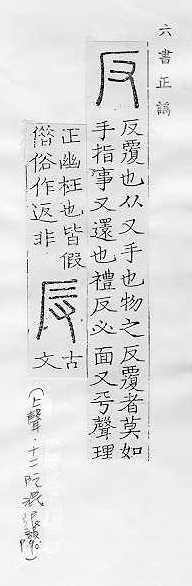 六書正譌
反
反覆也从又手也物之反覆者莫如
手指事又還也禮反必面又平聲理
正幽枉也皆假
借俗作返非
古
文
(上聲·十二阮混很韻